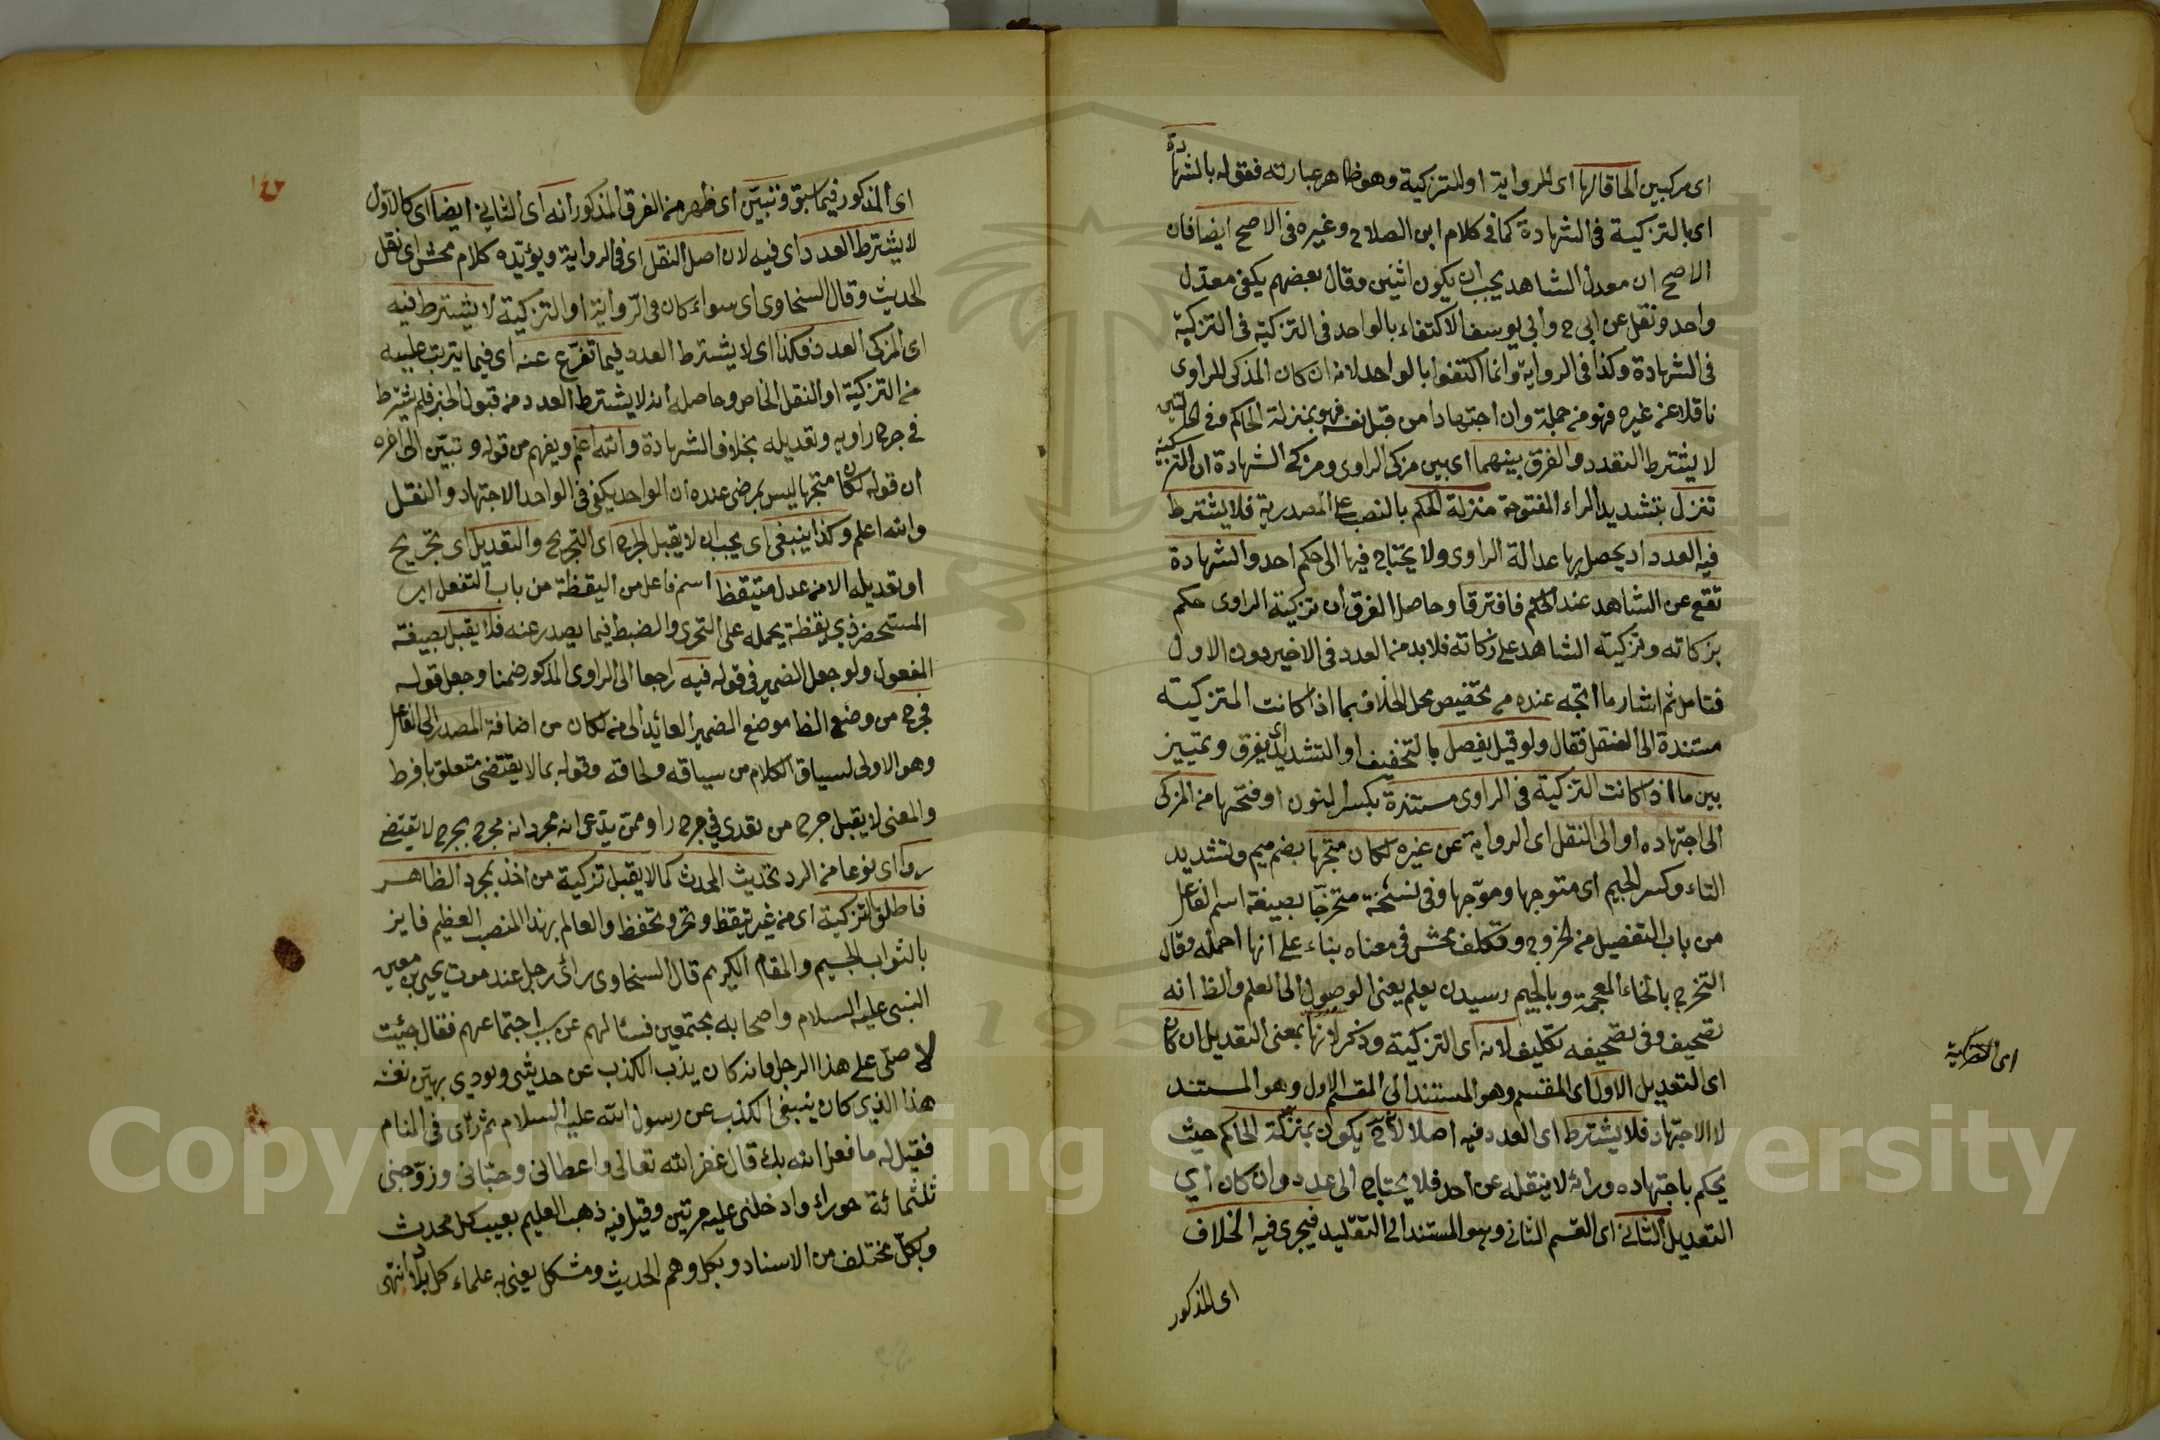 اى مركبين الحاقا لها اى للرواية او للتزكية وهو ظاهر عبارته فقوله بالشهادة
اى بالتزكية فى الشهادة كما فى كلام ابن الصلاح وغيره فى الاصح ايضا فان
الاصح ان معدل الشاهد يجب ان يكون اثنين وقال بعضهم يكفى معدل
واحد ونقل عن ابى ح وابى يوسف الاكتفاء بالواحد فى التزكية فى التزكية
فى الشهادة وكذا فى الرواية وانما اكتفوا بالواحد لانه ان كان المزكى للراوى
ناقلا عن غيره فهو من جملة وان اجتهادا من قبل نفسه فهو بمنزلة الحاكم وفى الحالتين
لا يشترط التعدد والفرق بينهما اى بين مزكى الراوى ومزكى الشهادة ان التزكية
تنزل بتشديد الراء المفتوحة منزلة الحكم بالنصب على المصدرية فلا يشترط
فيه العدد اذ يحصل بها عدالة الراوى ولا يحتاج فيها الى حكم احد والشهادة
تقع عن الشاهد عند الحاكم فافترقا وحاصل الفرق ان تزكية الراوى حكم
بزكاته وتزكية الشاهد على زكاته فلا بد من العدد فى الاخير دون الاول
فتامل ثم اشار ما اتجه عنده من تخصيص محل الخلاف بما اذا كانت التزكية
مستندة الى النقل فقال ولو قيل يفصل بالتخفيف او التشديد اى يفرق ويتميز
بين ما اذا كانت التزكية فى الراوى مستندة بكسر النون او فتحها من المزكى
الى اجتهاده او الى النقل اى الرواية عن غيره لكان متجها بضم ميم وتشديد
التاء وكسر الجيم اى متوجها وموجها وفى نسخة متخرجا بصيغة اسم الفاعل
من باب التفعيل من الخروج وتكلف محش فى معناه بناء على انها احمله وقال
التخرج بالخاء المعجمة وبالجيم رسيدن بعلم يعنى الوصول الى العلم والظ انه
تصحيف وفى تصحيفه تكليف لانه اى التزكية وذكر لانها بمعنى التعديل ان كان
اى التعديل الاول اى المقسم وهو المستند الى القسم الاول وهو المستند
لا الاجتهاد فلا يشترط اى العدد فيه اصلا لانه ح يكون بمنزلة الحاكم حيث
يحكم باجتهاده ورائه لا ينقله عن احد فلا يحتاج الى عدد وان كان اى
التعديل الثانى اى القسم الثانى وهو المستند الى التقليد فيجرى فيه الخلاف
اى المذكور
اى التزكية
١٤٧
اى المذكور فيما سبق وتبيّن اى ظهر من الفرق المذكور انه اى الثانى ايضا اى كالاول
لا يشترط العدد اى فيه لان اصل النقل اى فى الرواية ويؤيده كلام محش اى نقل
الحديث وقال السخاوى اى سواء كان فى الرواية او التزكية لا يشترط فيه
اى المزكى العدد فكذا اى لا يشترط العدد فيما تفرّع عنه اى فيما يترتب عليه
من التزكية او النقل الخاص وحاصله انه لا يشترط العدد من قبول الخبر فلم يشترط
فى جرح راويه وتعديله بخلاف الشهادة والله اعلم ويفهم من قوله وتبيّن الى اخره
ان قوله لكان متجها ليس بمرضى عنده ان الواحد يكفى فى الواحد الاجتهاد والنقل
والله اعلم وكذا ينبغى اى يجب ان لا يقبل الجرح اى التجريح والتعديل اى تجريح
او تعديله الا من عدل متيقظ اسم فاعل من اليقظة من باب التفعل اى
المستحضر ذى يقظة يحمله على التحرى والضبط فيما يصدر عنه فلا يقبل بصيغة
المفعول ولو جعل الضمير فى قوله فيه راجعا الى الراوى المذكور ضمنا وجعل قوله
فجرح من وضع الظا موضع الضمير العائد الى من لكان من اضافة المصدر الى الفاعل
وهو الاولى لسياق الكلام من سباقه ولحاقه وقوله بما لا يقتضى متعلق بافرط
والمعنى لا يقبل جرح من تعدى فى جرح راو ممن يدعى انه مجرد انه مجرح بجرح لا يقتضى
ردا اى نوعا من الرد لحديث المحدث كما لا يقبل تزكية من اخذ بمجرد الظاهر
فاطلق التزكية اى من غير تيقظ وتحر وتحفظ والعالم بهذا المنصب العظيم فايز
بالثواب الجسيم والمقام الكريم قال السخاوى رأى رجل عند موت يحيى بن معين
النبى عليه السلام واصحابه مجتمعين فسئالهم عن سبب اجتماعهم فقال جئت
لاصلّى على هذا الرجل فانه كان يذب الكذب عن حديثى ونودى بهيّن نعشه
هذا الذى كان ينبغى الكذب عن رسول الله عليه السلام ثم رأى فى المنام
فقيل له ما فعل الله بك قال غفر الله تعالى واعطانى وحبّانى وزوّجنى
ثلثمائة حوراء وادخلنى عليه مرتين وقيل فيه ذهب العليم بعيب كل محدث
وبكلّ مختلف من الاسناد وبكل وهم الحديث ومشكل يعنى به علماء كل بلاد انتهى